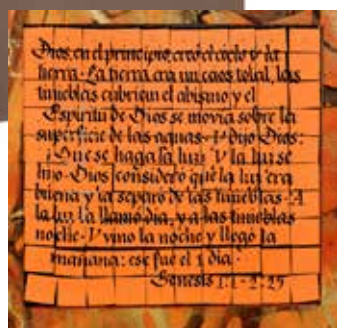 Dios, en el principio, creó el cielo y la
tierra - La tierra era un caos total, las
tinieblas cubrían el abismo y el
Espíritu de Dios se movía sobre la
superficie de las aguas - Y dijo Dios:
¡Que se haga la luz! Y la luz se
hizo - Dios consideró que la luz era
buena y la separó de las tinieblas - A
la luz la llamó día, y a las tinieblas
noche - Y vino la noche y llegó la
mañana: ese fue el 1 día -
Genesis 1:1-2:25